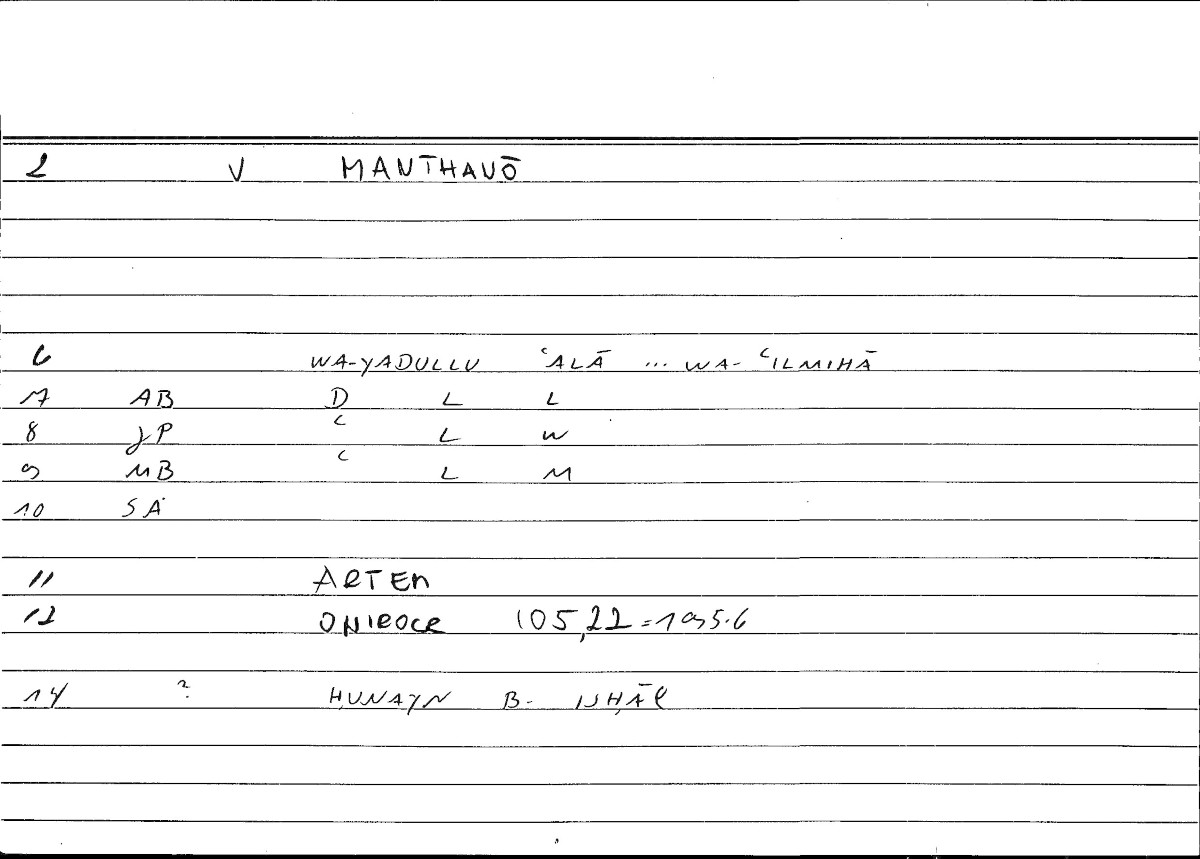 2 V MANTHANŌ
6 WA-YADULLU ʿALĀ ... WA-ʿILMIHĀ
7 AB D L L
8 JP ʿ L W
9 MB ʿ L M
10 SA
11 ARTEM
12 ONIROCR 105,22=195.6
14 ? ḤUNAYN B. ISḤĀQ